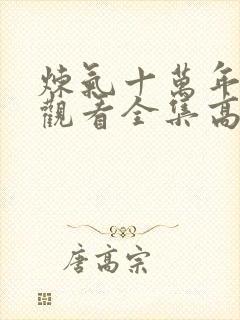 煉氣十萬年
觀看全集高
唐高宗